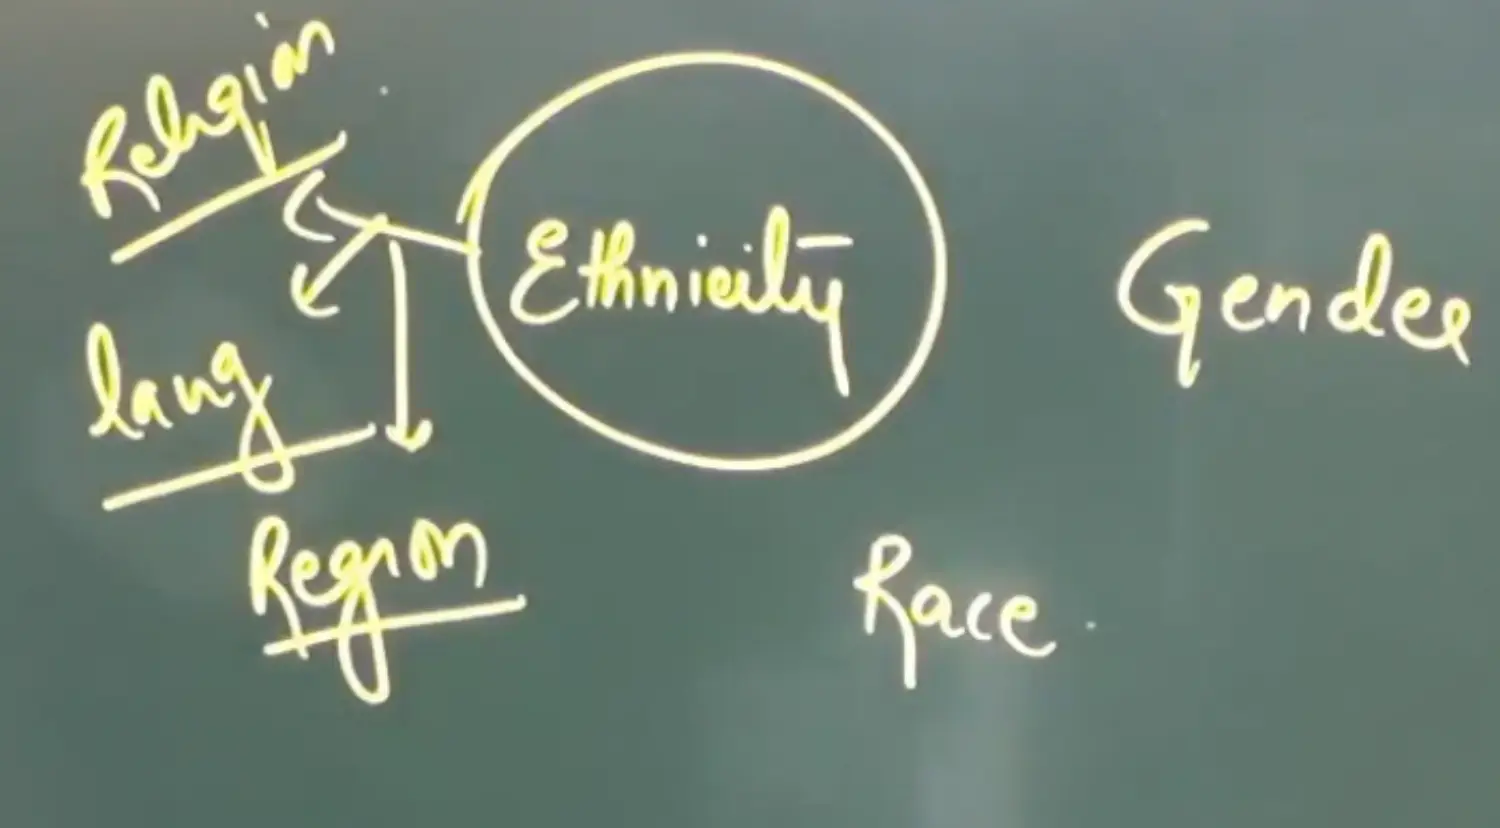 Religion
Ethnicity
Gender
lang
Region
Race